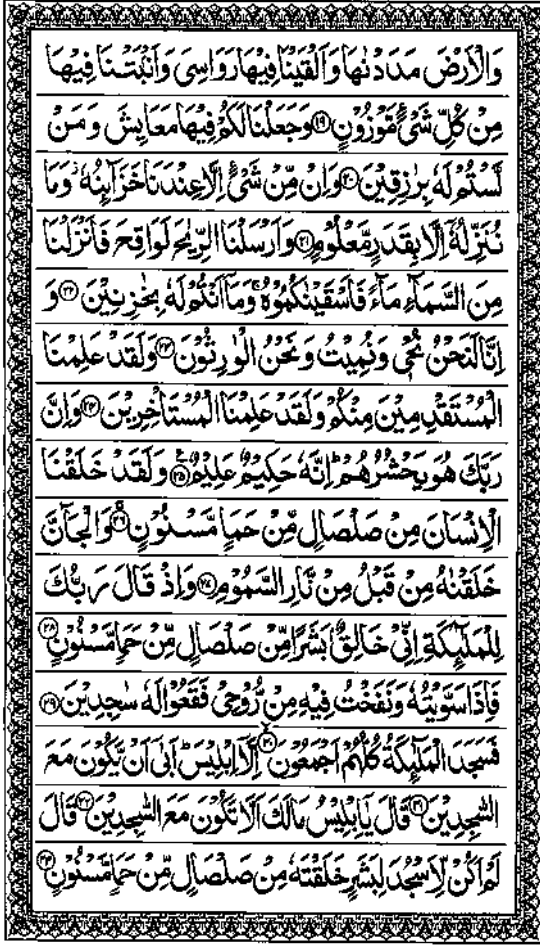 وَالْاَرْضَ مَدَدْنٰهَا وَاَلْقَيْنَا فِيْهَا رَوَاسِىَ وَاَنْۢبَتْنَا فِيْهَا
مِنْ كُلِّ شَىْءٍ مَّوْزُوْنٍ ۝١٩ وَجَعَلْنَا لَكُمْ فِيْهَا مَعَايِشَ وَمَنْ
لَّسْتُمْ لَهٗ بِرٰزِقِيْنَ ۝٢٠ وَاِنْ مِّنْ شَىْءٍ اِلَّا عِنْدَنَا خَزَآئِنُهٗ ؗ وَمَا
نُنَزِّلُهٗٓ اِلَّا بِقَدَرٍ مَّعْلُوْمٍ ۝٢١ وَاَرْسَلْنَا الرِّيٰحَ لَوَاقِحَ فَاَنْزَلْنَا
مِنَ السَّمَآءِ مَآءً فَاَسْقَيْنٰكُمُوْهُ ۚ وَمَآ اَنْتُمْ لَهٗ بِخٰزِنِيْنَ ۝٢٢ وَ
اِنَّا لَنَحْنُ نُحْىٖ وَنُمِيْتُ وَنَحْنُ الْوٰرِثُوْنَ ۝٢٣ وَلَقَدْ عَلِمْنَا
الْمُسْتَقْدِمِيْنَ مِنْكُمْ وَلَقَدْ عَلِمْنَا الْمُسْتَاْخِرِيْنَ ۝٢٤ وَاِنَّ
رَبَّكَ هُوَ يَحْشُرُهُمْ ؕ اِنَّهٗ حَكِيْمٌ عَلِيْمٌ ۝٢٥ وَلَقَدْ خَلَقْنَا
الْاِنْسَانَ مِنْ صَلْصَالٍ مِّنْ حَمَاٍ مَّسْنُوْنٍ ۝٢٦ وَالْجَآنَّ
خَلَقْنٰهُ مِنْ قَبْلُ مِنْ نَّارِ السَّمُوْمِ ۝٢٧ وَاِذْ قَالَ رَبُّكَ
لِلْمَلٰٓئِكَةِ اِنِّىْ خَالِقٌۢ بَشَرًا مِّنْ صَلْصَالٍ مِّنْ حَمَاٍ مَّسْنُوْنٍ ۝٢٨
فَاِذَا سَوَّيْتُهٗ وَنَفَخْتُ فِيْهِ مِنْ رُّوْحِىْ فَقَعُوْا لَهٗ سٰجِدِيْنَ ۝٢٩
فَسَجَدَ الْمَلٰٓئِكَةُ كُلُّهُمْ اَجْمَعُوْنَ ۝٣٠ اِلَّآ اِبْلِيْسَ ؕ اَبٰٓى اَنْ يَّكُوْنَ مَعَ
السّٰجِدِيْنَ ۝٣١ قَالَ يٰۤاِبْلِيْسُ مَا لَكَ اَلَّا تَكُوْنَ مَعَ السّٰجِدِيْنَ ۝٣٢ قَالَ
لَمْ اَكُنْ لِّاَسْجُدَ لِبَشَرٍ خَلَقْتَهٗ مِنْ صَلْصَالٍ مِّنْ حَمَاٍ مَّسْنُوْنٍ ۝٣٣